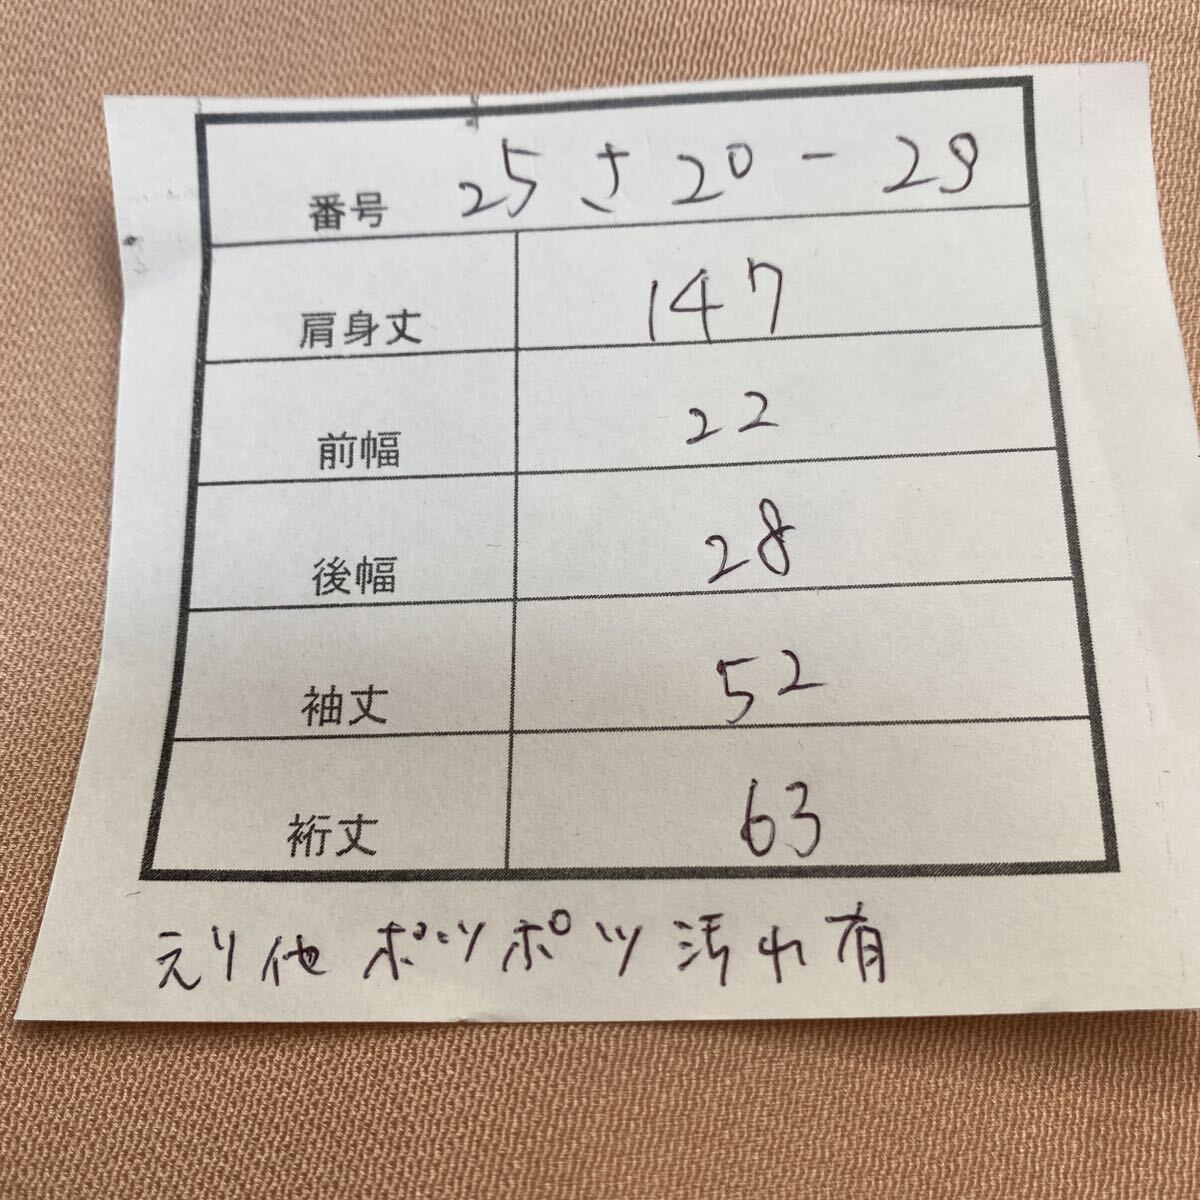 番号 25さ20-29
肩身丈 147
前幅 22
後幅 28
袖丈 52
裄丈 63
えり他 ポツポツ 汚れ有